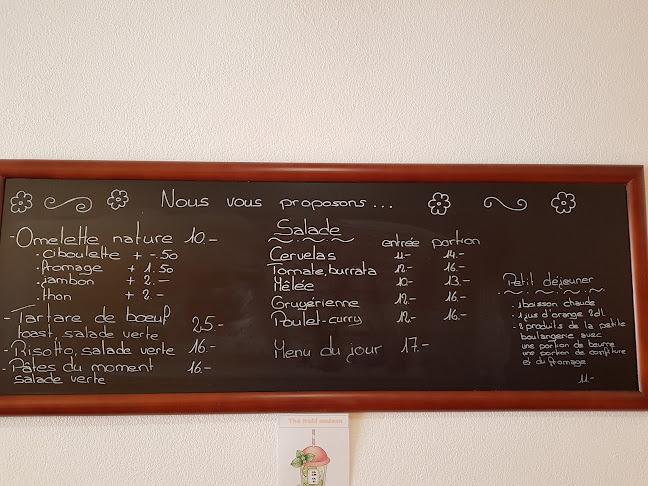 Nous vous proposons...
- Omelette nature 10.-
. ciboulette + -.50
. fromage + 1.50
. jambon + 2.-
. thon + 2.-
- Tartare de boeuf 25.-
toast, salade verte
- Risotto, salade verte 16.-
- Pâtes du moment 16.-
salade verte
Salade
entrée portion
Cervelas 11.- 14.-
Tomate, burrata 12.- 16.-
Mêlée 10.- 13.-
Gruyérienne 12.- 16.-
Poulet-curry 12.- 16.-
Menu du jour 17.-
Petit déjeuner
. 1 boisson chaude
. 1 jus d'orange 2dl
. 2 produits de la petite
boulangerie avec
une portion de beurre
une portion de confiture
et du fromage
11.-
Thé froid maison